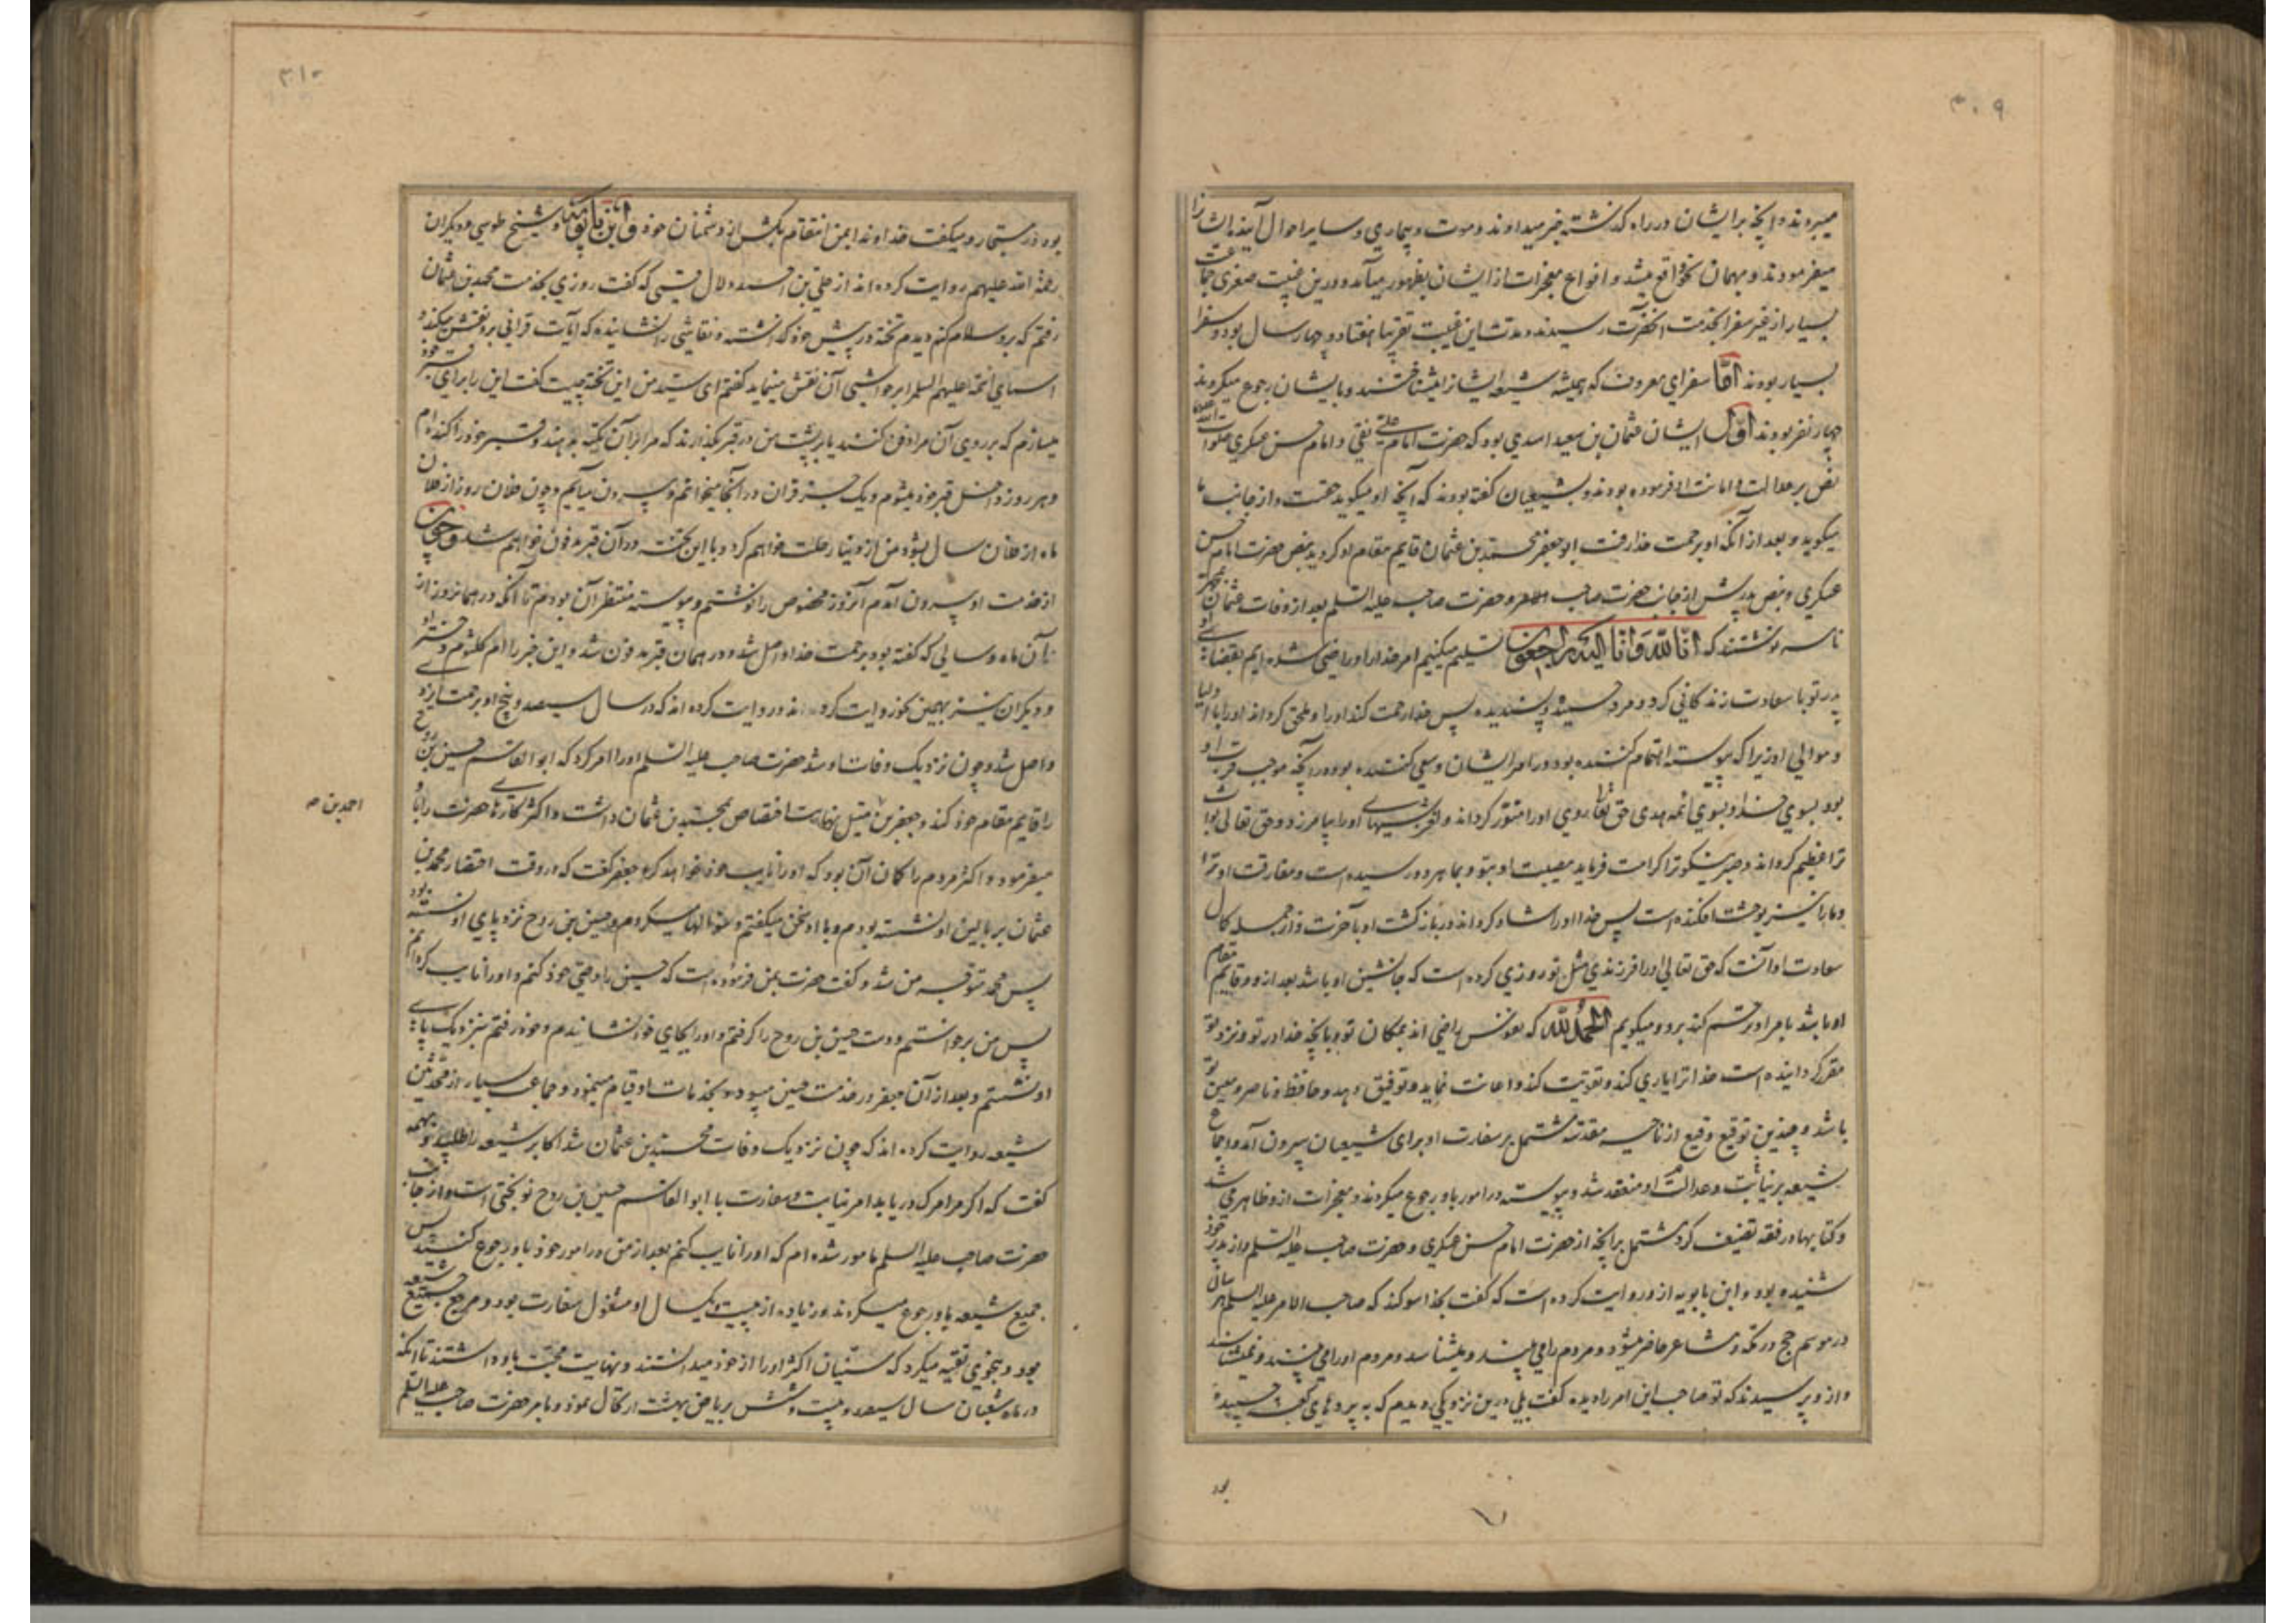 ۳۰۹
میبردند و آنچه بر ایشان در راه گذشته خبر میدادند و موت و بیماری و سایر احوال آینده ایشان را
میفرمودند و بهمان نحو واقع میشد و انواع معجزات از ایشان بظهور میآمد و درین غیبت صغری جماعت
بسیار از غیر سفرا بخدمت آنحضرت رسیدند و مدت این غیبت تقریبا هفتاد و چهار سال بود و سفرا
بسیار بودند اما سفرای معروف که همیشه شیعه ایشانرا میشناختند و بایشان رجوع میکردند
چهار نفر بودند اول ایشان عثمان بن سعید اسدی بود که حضرت امام علی نقی و امام حسن عسکری صلوات الله علیهما
نص بر عدالت و امانت او فرموده بودند و بشیعیان گفته بودند که آنچه او میگوید حقست و از جانب ما
میگوید و بعد از آنکه او برحمت خدا رفت ابو جعفر محمد بن عثمان قایم مقام او گردید بنص حضرت امام حسن
عسکری و بنص پدرش از جانب حضرت صاحب الامر و حضرت صاحب علیه السلم بعد از وفات عثمان بمحمد
نامه نوشتند که انا لله و انا الیه راجعون تسلیم میکنیم امر خدا را و راضی شده ایم بقضای او
پدر تو با سعادت زندگانی کرد و مرد حمیده و پسندیده پس خدا رحمت کند او را و ملحق گرداند او را باولیا
و موالی او زیرا که پیوسته اهتمام کننده بود در امر ایشان و سعی کننده بود در آنچه موجب قربت او
بود بسوی خدا و بسوی ائمه هدی حق تعالی روی او را منور گرداند و لغزشهای او را بیامرزد و حق تعالی ثواب
ترا عظیم گرداند و صبر نیکو ترا کرامت فرماید مصیبت او بتو و بما هر دو رسیده است و مفارقت او ترا
و ما را نیز بوحشت افکنده است پس خدا او را شاد گرداند در بازگشت او بآخرت و از جمله کمال
سعادت او آنست که حق تعالی او را فرزندی مثل تو روزی کرده است که جانشین او باشد بعد از او و قایم مقام
او باشد بامر او و ترحم کند برو و میگویم الحمد لله که نفوس راضی اند بمکان تو و بآنچه خدا در تو و نزد تو
مقرر گردانیده است خدا ترا یاری کند و تقویت کند و اعانت نماید و توفیق دهد و حافظ و ناصر و معین تو
باشد و چندین توقیع رفیع از ناحیه مقدسه مشتمل بر سفارت او برای شیعیان بیرون آمد و اجماع
شیعه بر نیابت و عدالت او منعقد شد و پیوسته در امور باو رجوع میکردند و معجزات ازو ظاهر می شد
و کتابها در فقه تصنیف کرد مشتمل بر آنچه از حضرت امام حسن عسکری و حضرت صاحب علیه السلم و از پدر خود
شنیده بود و ابن بابویه ازو روایت کرده است که گفت بخدا سوگند که صاحب الامر علیه السلم هر سال
در موسم حج در مکه و مشاعر حاضر میشود و مردم را می بیند و میشناسد و مردم او را می بینند و نمیشناسند
و ازو پرسیدند که تو صاحب این امر را دیده گفت بلی درین نزدیکی دیدم که به پردهای کعبه چسبیده
بود
۳۱۰
بود در مستجار و میگفت خداوندا بمن انتقام بکش از دشمنان خود و ابن بابویه و شیخ طوسی و دیگران
رحمة الله علیهم روایت کرده اند از علی بن احمد دلال قمی که گفت روزی بخدمت محمد بن عثمان
رفتم که برو سلام کنم دیدم تخته در پیش خود گذاشته و نقاشی را نشانیده که آیات قرآنی برو نقش میکند و
اسمای ائمه علیهم السلم را بر حواشی آن نقش مینماید گفتم ای سید من این تخته چیست گفت این را برای قبر خود
میسازم که بر روی آن مرا دفن کنند یا بر پشت من در قبر بگذارند که مرا بر آن تکیه بدهند و قبر خود را کنده ام
و هر روز داخل قبر خود میشوم و یک جزء قرآن در آنجا میخوانم و بیرون میآیم و چون فلان روز از فلان
ماه از فلان سال بشود من از دنیا رحلت خواهم کرد و با این تخته در آن قبر مدفون خواهم شد و چون
از خدمت او بیرون آمدم آنروز مخصوص را نوشتم و پیوسته منتظر آن بودم تا آنکه در همانروز از
آن ماه و سالی که گفته بود برحمت خدا واصل شد و در همان قبر مدفون شد و این خبر را ام کلثوم دختر او
و دیگران نیز بهمین نحو روایت کرده اند و روایت کرده اند که در سال سیصد و پنج او برحمت ایزدی
واصل شد و چون نزدیک وفات او شد حضرت صاحب علیه السلم او را امر کرد که ابو القاسم حسین بن روح
را قایم مقام خود کند و جعفر بن متیل نهایت اختصاص بمحمد بن عثمان داشت و اکثر کارهای حضرت را باو
احمد بن صح
میفرمود و اکثر مردم را گمان آن بود که او را نایب خود خواهد کرد جعفر گفت که در وقت احتضار محمد بن
عثمان بر بالین او نشسته بودم و با او سخن میگفتم و سؤالها میکردم و حسین بن روح نزد پای او نشسته بود
پس محمد متوجه من شد و گفت حضرت بمن فرموده است که حسین را وصی خود کنم و او را نایب گردانم
پس من برخواستم و دست حسین بن روح را گرفتم و او را بجای خود نشانیدم و خود رفتم بنزدیک پای
او نشستم و بعد از آن جعفر در خدمت حسین میبود و بخدمات او قیام مینمود و جماعت بسیار از محدثین
شیعه روایت کرده اند که چون نزدیک وفات محمد بن عثمان شد اکابر شیعه را طلبید و بهمه
گفت که اگر مرا مرگ دریابد امر نیابت و سفارت با ابو القاسم حسین بن روح نوبختی است و از جانب
حضرت صاحب علیه السلم مامور شده ام که او را نایب کنم بعد از من در امور خود باو رجوع کنید پس
جمیع شیعه باو رجوع میکردند و زیاده از بیست و یکسال او مشغول سفارت بود و مرجع جمیع شیعه
بود و بنحوی تقیه میکرد که سنیان اکثر او را از خود میدانستند و نهایت محبت باو داشتند تا آنکه
در ماه شعبان سال سیصد و بیست و شش بریاض بهشت ارتحال نمود و بامر حضرت صاحب علیه السلم